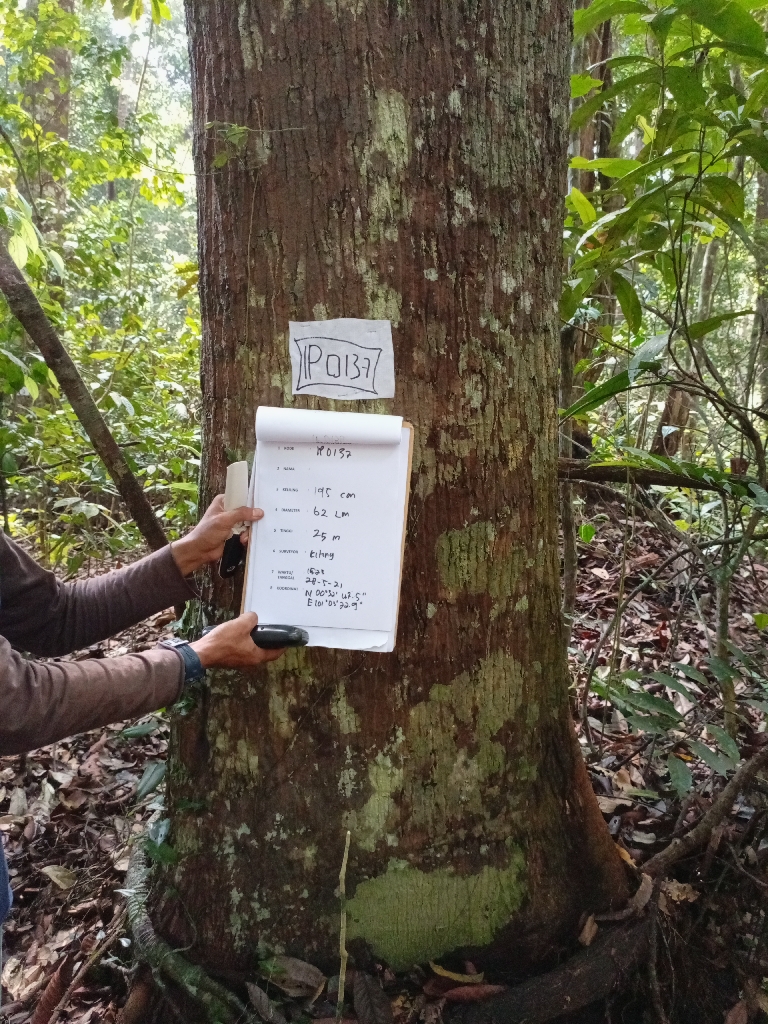 IP0137
1 KODE : IP0137
2 NAMA :
3 KELILING : 195 cm
4 DIAMETER : 62 cm
5 TINGGI : 25 m
6 SURVEYOR :
7 WAKTU/
TANGGAL : 28-5-21
8 KOORDINAT : N 00°32' 43.5"